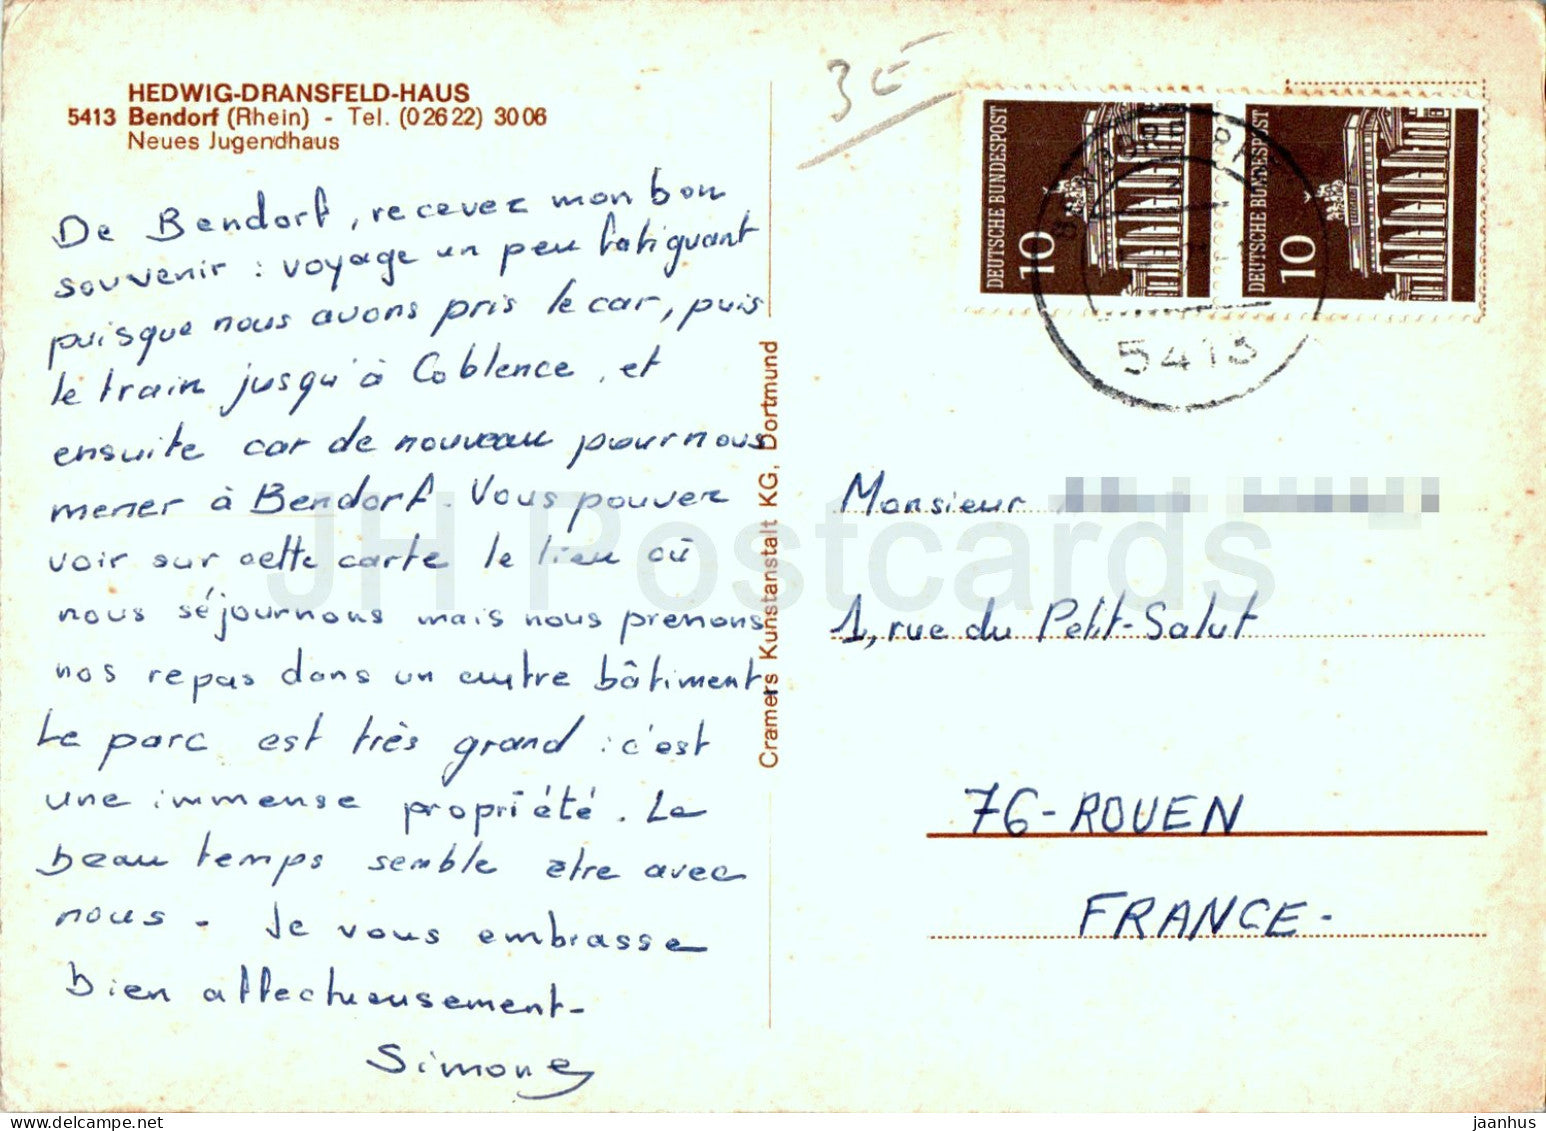 HEDWIG-DRANSFELD-HAUS
5413 Bendorf (Rhein) - Tel. (02622) 3006
Neues Jugendhaus
De Bendorf, recevez mon bon
souvenir : voyage un peu fatiguant
puisque nous avons pris le car, puis
le train jusqu'à Coblence, et
ensuite car de nouveau pour nous
mener à Bendorf. Vous pouvez
voir sur cette carte le lieu où
nous séjournons mais nous prenons
nos repas dans un autre bâtiment.
Le parc est très grand : c'est
une immense propriété. Le
beau temps semble être avec
nous - Je vous embrasse
bien affectueusement -
Simone
Cramers Kunstanstalt KG, Dortmund
3 €
DEUTSCHE BUNDESPOST
10
DEUTSCHE BUNDESPOST
10
5413
Monsieur
1, rue du Petit-Salut
76 - ROUEN
FRANCE -
JH Postcards
jaanhus @ delcampe.net